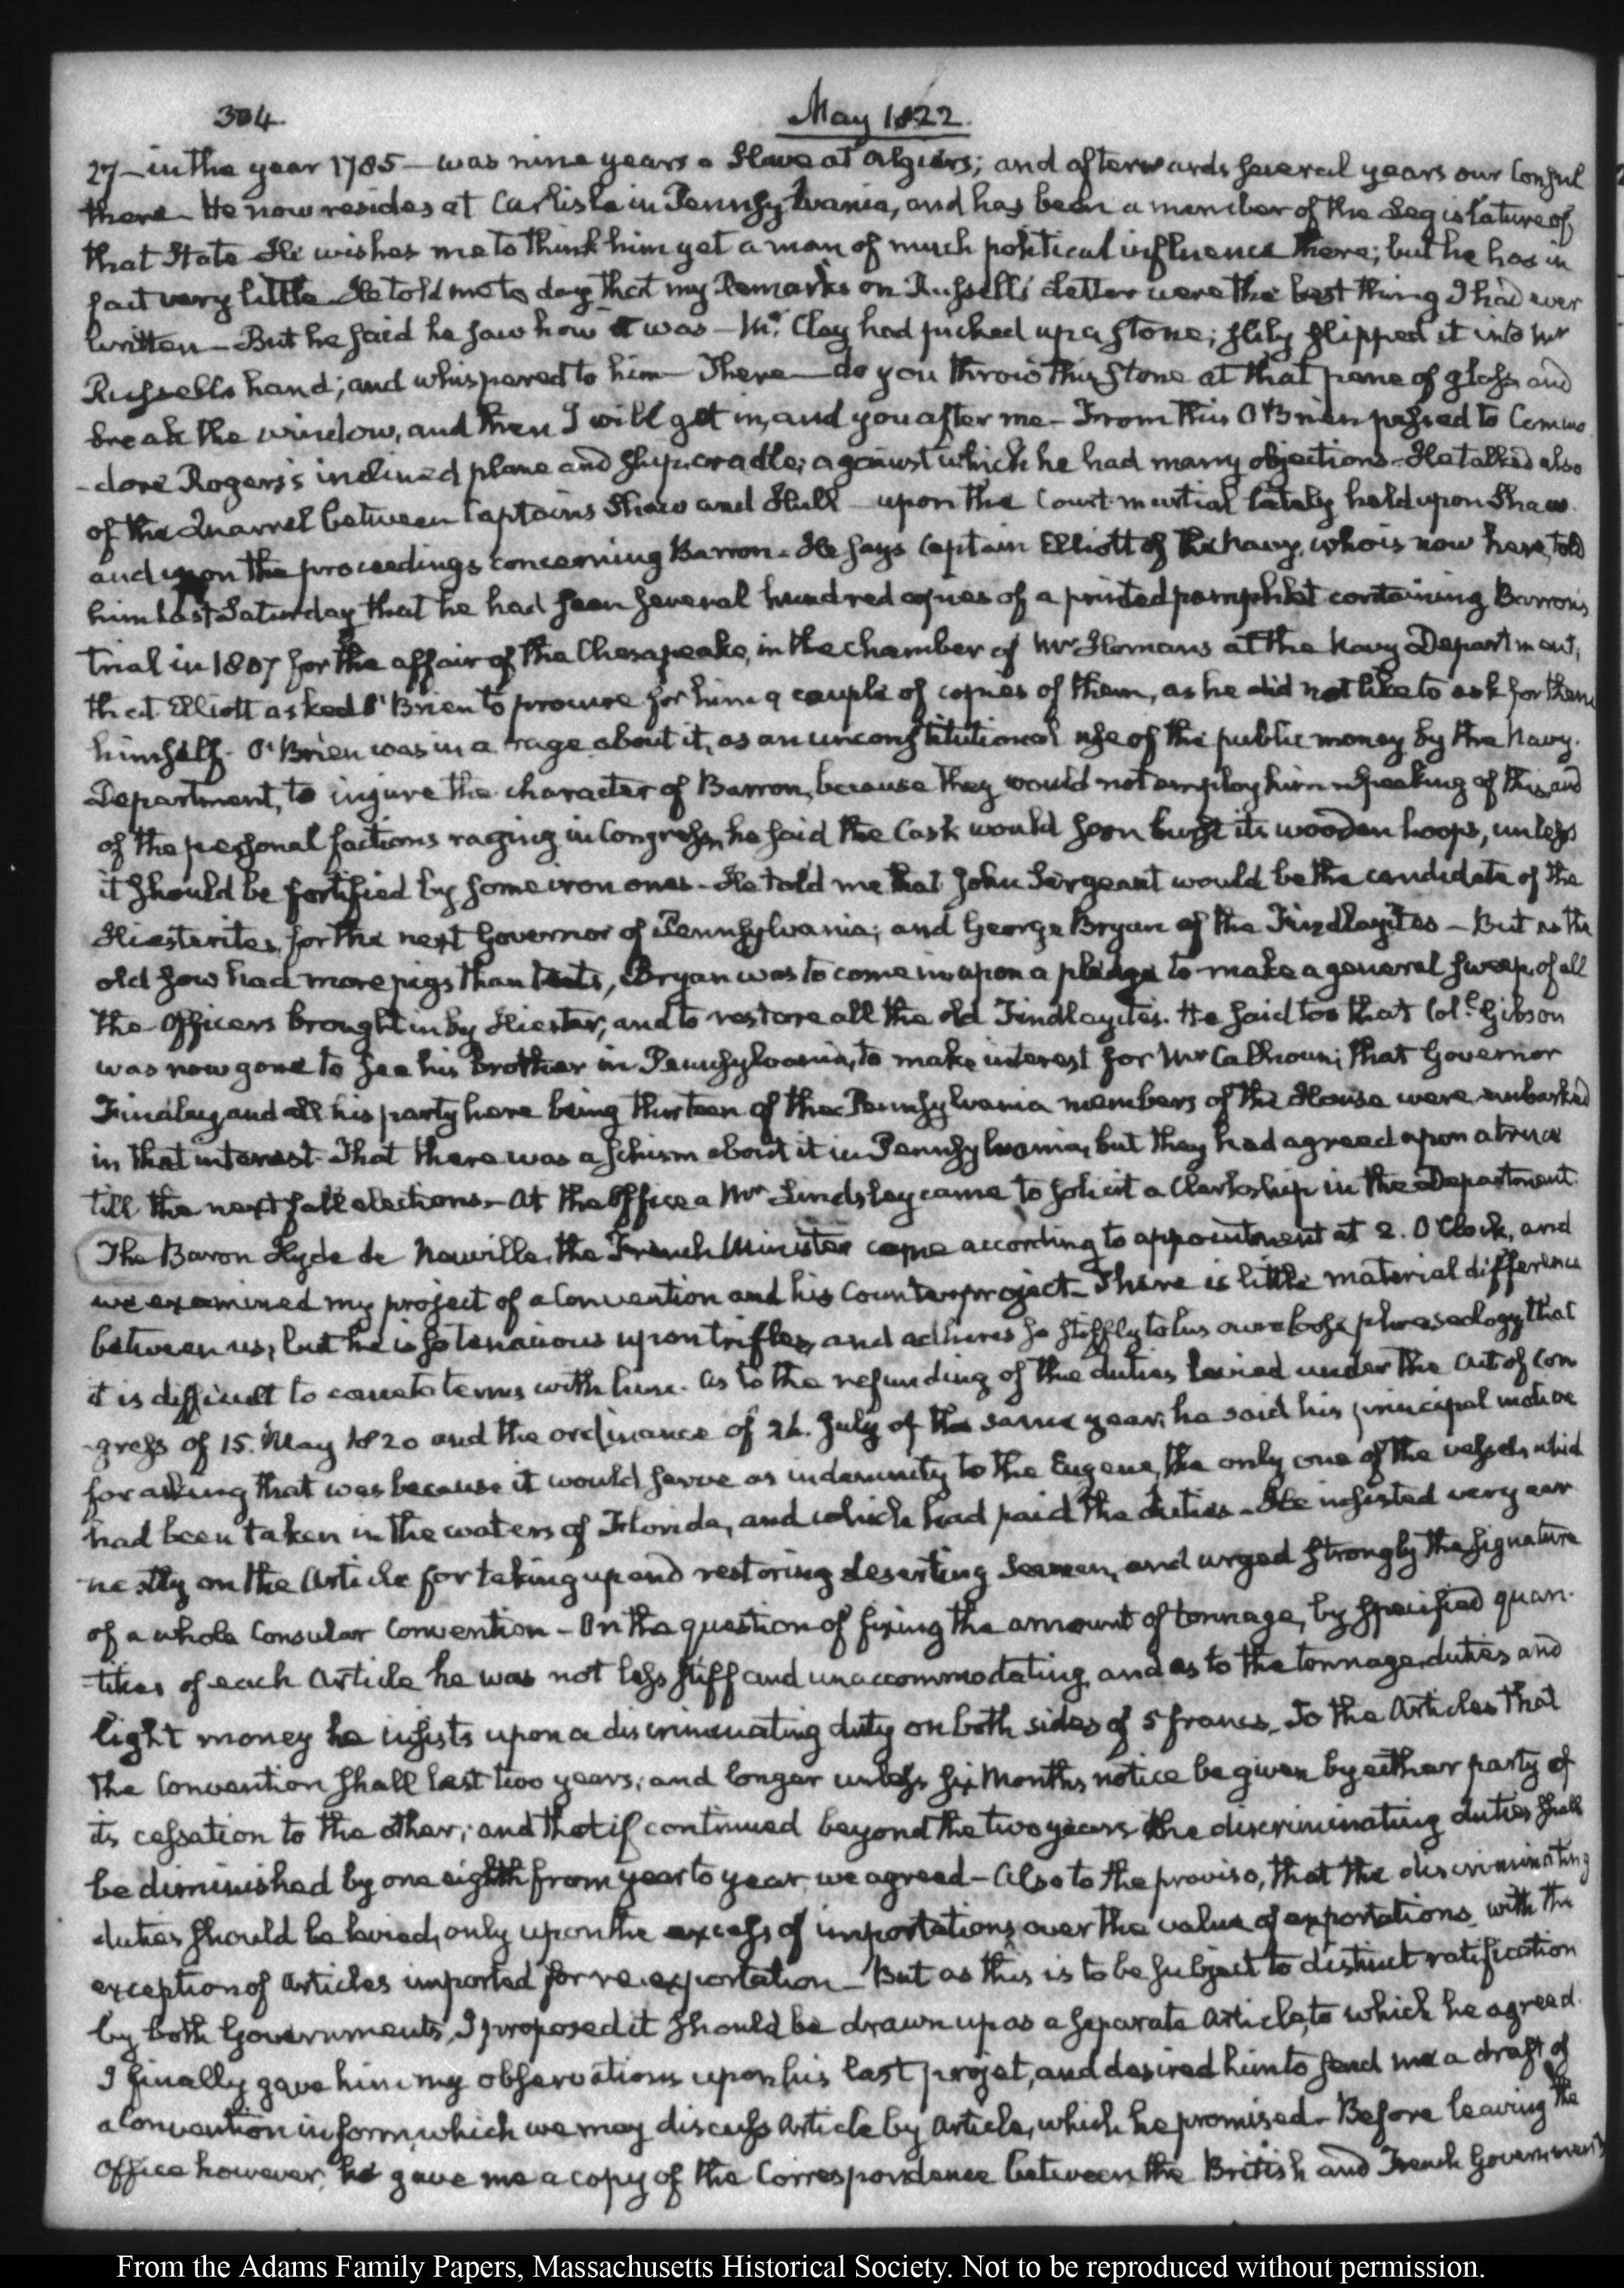 304
May 1822.
27 — in the year 1785 — was nine years a Slave at Algiers; and afterwards several years our Consul
there — He now resides at Carlisle in Pennsylvania, and has been a member of the Legislature of
that State — He wishes me to think him yet a man of much political influence there; but he has in
fact very little — He told me to day that my Remarks on Russell's Letter were the best thing I had ever
written — But he said he saw how it was — Mr. Clay had picked up a stone; slily slipped it into Mr
Russell's hand; and whispered to him — There — do you throw this stone at that pane of glass and
break the window, and then I will get in, and you after me — From this O'Brien passed to Commo
-dore Rogers's inclined plane and ship-cradle; against which he had many objections — He talked also
of the Quarrel between Captains Shaw and Hull — upon the Court-martial lately held upon Shaw.
and upon the proceedings concerning Barron — He says Captain Elliott of the Navy, who is now here, told
him last Saturday that he had seen several hundred copies of a printed pamphlet containing Barron's
trial in 1807 for the affair of the Chesapeake, in the chamber of Mr Homans at the Navy Department,
that Elliott asked O'Brien to procure for him a couple of copies of them, as he did not like to ask for them
himself. O'Brien was in a rage about it, as an unconstitutional use of the public money by the Navy.
Department, to injure the character of Barron, because they would not employ him — Speaking of this, and
of the personal factions raging in Congress, he said the Cask would soon burst its wooden hoops, unless
it should be fortified by some iron ones — He told me that John Sergeant would be the candidate of the
Hiesterites, for the next Governor of Pennsylvania; and George Bryan of the Findlayites — But as the
old sow had more pigs than teats, Bryan was to come in upon a pledge to make a general sweep of all
the Officers brought in by Hiester, and to restore all the old Findlayites. He said too that Coll. Gibson
was now gone to see his brother in Pennsylvania, to make interest for Mr Calhoun; that Governor
Findlay and all his party here being thirteen of the Pennsylvania members of the House were embarked
in that interest — That there was a schism about it in Pennsylvania, but they had agreed upon a truce
till the next fall elections — At the Office a Mr Lindsley came to solicit a Clerkship in the Department.
The Baron Hyde de Neuville, the French Minister came according to appointment at 2. O'Clock, and
we examined my project of a Convention and his Counter-project — There is little material difference
between us; but he is so tenacious upon trifles, and adheres so stiffly to his own loose phraseology that
it is difficult to come to terms with him. As to the refunding of the duties levied under the Act of Con
-gress of 15. May 1820 and the ordinance of 26. July of the same year; he said his principal motive
for asking that was because it would serve as indemnity to the Eugene, the only one of the vessels which
had been taken in the waters of Florida, and which had paid the duties — He insisted very ear
-nestly on the Article for taking up and restoring deserting Seamen, and urged strongly the signature
of a whole Consular Convention — On the question of fixing the amount of tonnage, by specified quan-
-tities of each Article he was not less stiff and unaccommodating, and as to the tonnage duties and
light money he insists upon a discriminating duty on both sides of 5 francs. To the Articles that
the Convention shall last two years; and longer unless six Months notice be given by either party of
its cessation to the other; and that if continued beyond the two years the discriminating duties shall
be diminished by one eighth from year to year we agreed — Also to the proviso, that the discriminating
duties should be levied, only upon the excess of importations over the value of exportations with the
exception of Articles imported for re-exportation — But as this is to be subject to distinct ratification
by both Governments, I proposed it should be drawn up as a separate Article, to which he agreed.
I finally gave him my observations upon his last projet, and desired him to send me a draft of
a Convention in form, which we may discuss Article by Article, which he promised — Before leaving the
Office however, he gave me a copy of the Correspondence between the British and French Governments
From the Adams Family Papers, Massachusetts Historical Society. Not to be reproduced without permission.